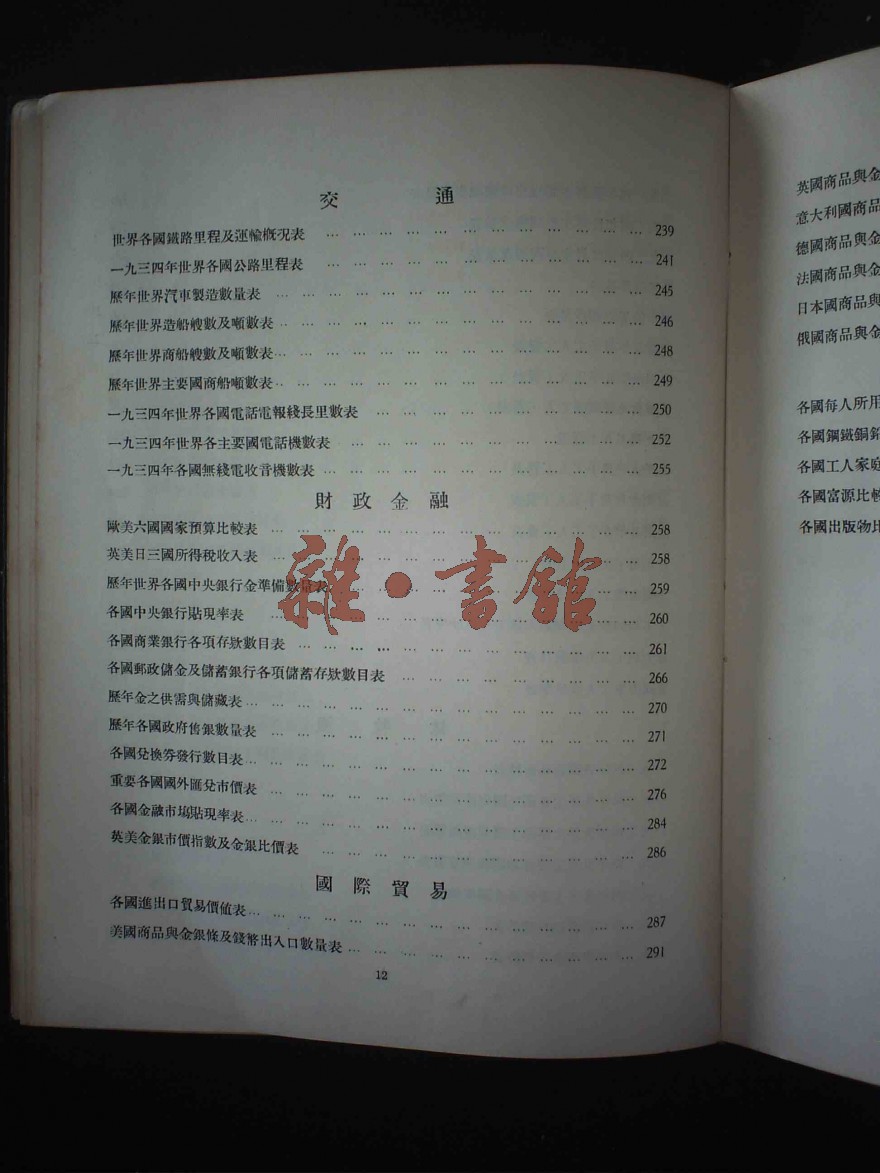 交通
世界各國鐵路里程及運輸概況表 … … … … … … … … … … … … 239
一九三四年世界各國公路里程表 … … … … … … … … … … … … 241
歷年世界汽車製造數量表 … … … … … … … … … … … … … … 245
歷年世界造船艘數及噸數表 … … … … … … … … … … … … … … 246
歷年世界商船艘數及噸數表 … … … … … … … … … … … … … … 248
歷年世界主要國商船噸數表 … … … … … … … … … … … … … … 249
一九三四年世界各國電話電報綫長里數表 … … … … … … … … … … 250
一九三四年世界各主要國電話機數表 … … … … … … … … … … … 252
一九三四年各國無綫電收音機數表 … … … … … … … … … … … … 255
財政金融
歐美六國國家預算比較表 … … … … … … … … … … … … … … 258
英美日三國所得稅收入表 … … … … … … … … … … … … … … 258
歷年世界各國中央銀行金準備數量表 … … … … … … … … … … … 259
各國中央銀行貼現率表 … … … … … … … … … … … … … … … 260
各國商業銀行各項存欵數目表 … … … … … … … … … … … … … 261
各國郵政儲金及儲蓄銀行各項儲蓄存欵數目表 … … … … … … … … … 266
歷年金之供需與儲藏表 … … … … … … … … … … … … … … … 270
歷年各國政府售銀數量表 … … … … … … … … … … … … … … 271
各國兌換券發行數目表 … … … … … … … … … … … … … … … 272
重要各國國外匯兌市價表 … … … … … … … … … … … … … … 276
各國金融市場貼現率表 … … … … … … … … … … … … … … … 284
英美金銀市價指數及金銀比價表 … … … … … … … … … … … … 286
國際貿易
各國進出口貿易價值表 … … … … … … … … … … … … … … … 287
美國商品與金銀條及錢幣出入口數量表 … … … … … … … … … … … 291
12
雜·書館
英國商品與金
意大利國商品
德國商品與金
法國商品與金
日本國商品與
俄國商品與金
各國每人所用
各國鋼鐵銅鉛
各國工人家庭
各國富源比較
各國出版物比